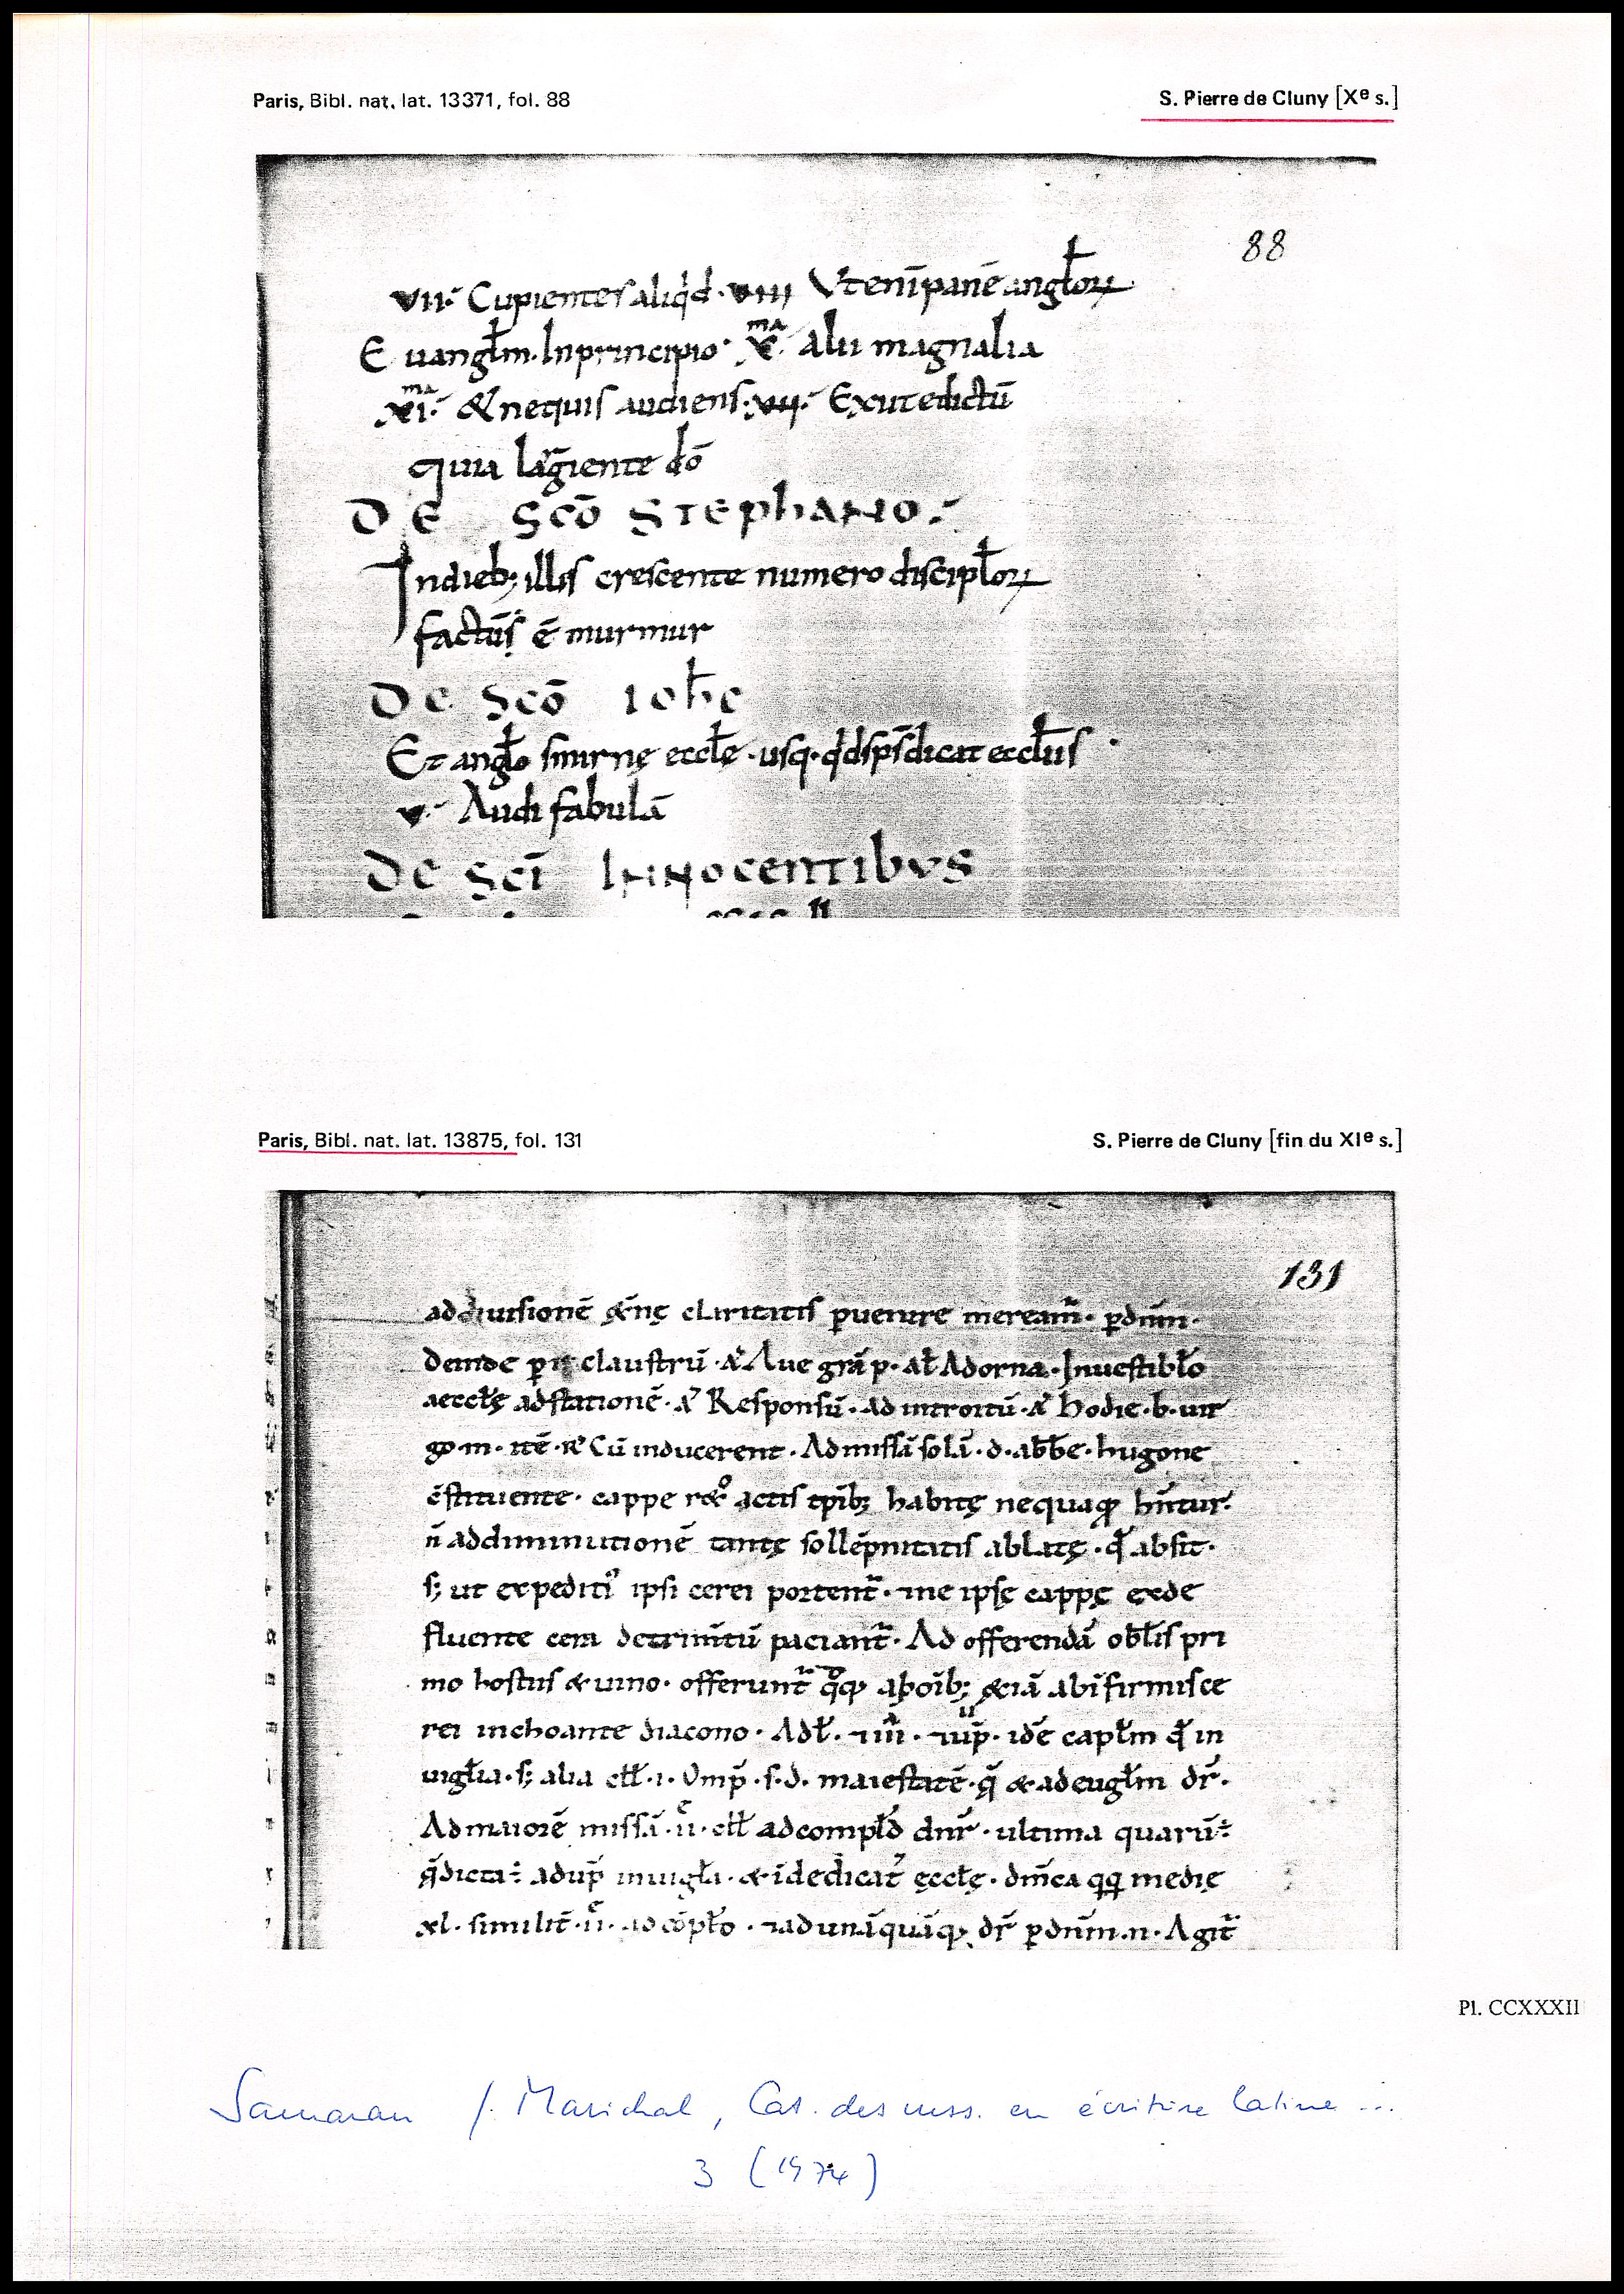 Paris, Bibl. nat. lat. 13371, fol. 88
S. Pierre de Cluny [Xe s.]
88
vii· Cupientes aliqd̄· viii Vteni᷒panē anglo̵ꝝ
E uanglm̄· Inprincipio· x̄ma· alii magnalia
xima· & nequis audiens· vii· Exutedictū
quia largiente dō
DE SCŌ STEPhANO·
Indieb; illis crescente numero discipl̵oꝝ
factūs ē murmur
DE SCŌ IOħE
Et angl̵o smirnę eccl̵ę· usq· qd̄sps̄dicat eccl̵iis·
v· Audi fabulā
DE SCĪ INNOCENTIBVS
Paris, Bibl. nat. lat. 13875, fol. 131
S. Pierre de Cluny [fin du XIe s.]
131
ad uisionē &n̄ę claritatis ꝑuenire meream̄· ꝑdnm̄·
deinde ꝑ claustrū· a᷒ Aue grā p· al̵ Adorna· Inuestibl̵o
aeccl̵ę adstationē· a᷒ Responsū· ad introitū· a᷒ hodie· b· uir
go· m· itē· R᷒ Cū inducerent· Admissā solā· d· abb̄e· hugone
c̄stituente· cappe r&o actis tpīb; habitę nequaꝙ hn̄tur·
n̄ addiminutionē tantę sollēpnitatis ablatę· qđ absit·
s; ut expediti᷒ ipsi cerei portent̄· ⁊ne ipsę cappę exde
fluente cera detrim̄tū paciant̄· Ad offerendā obl̵is pri
mo hostiis & uino· offerunt̄ qꝙ abōib; &iā abīfirmisce
rei inchoante diacono· Adt̵· ⁊ui· ⁊up̄· idē capl̵m qđ in
uigl̵ia· s; alia cll̵· i· Omp̄· s· d· maiestatē· q̄ & adeugl̵m dr̄·
Admaiorē missā· ii· cll̵ adcompl̵d dnr̄· ultima quarū
q̄dicta adup̄ inuigl̵a· & idedicat᷒ ęccl̵ę· dnīca qq medię
xl· similit̄· ii· ad cōpl̵o· ⁊adunāquāꝙ dr̄ ꝑdnm̄· n· Agit̄
Pl. CCXXXII
Samaran / Marichal, Cat. des mss. en écriture latine ...
3 (1974)